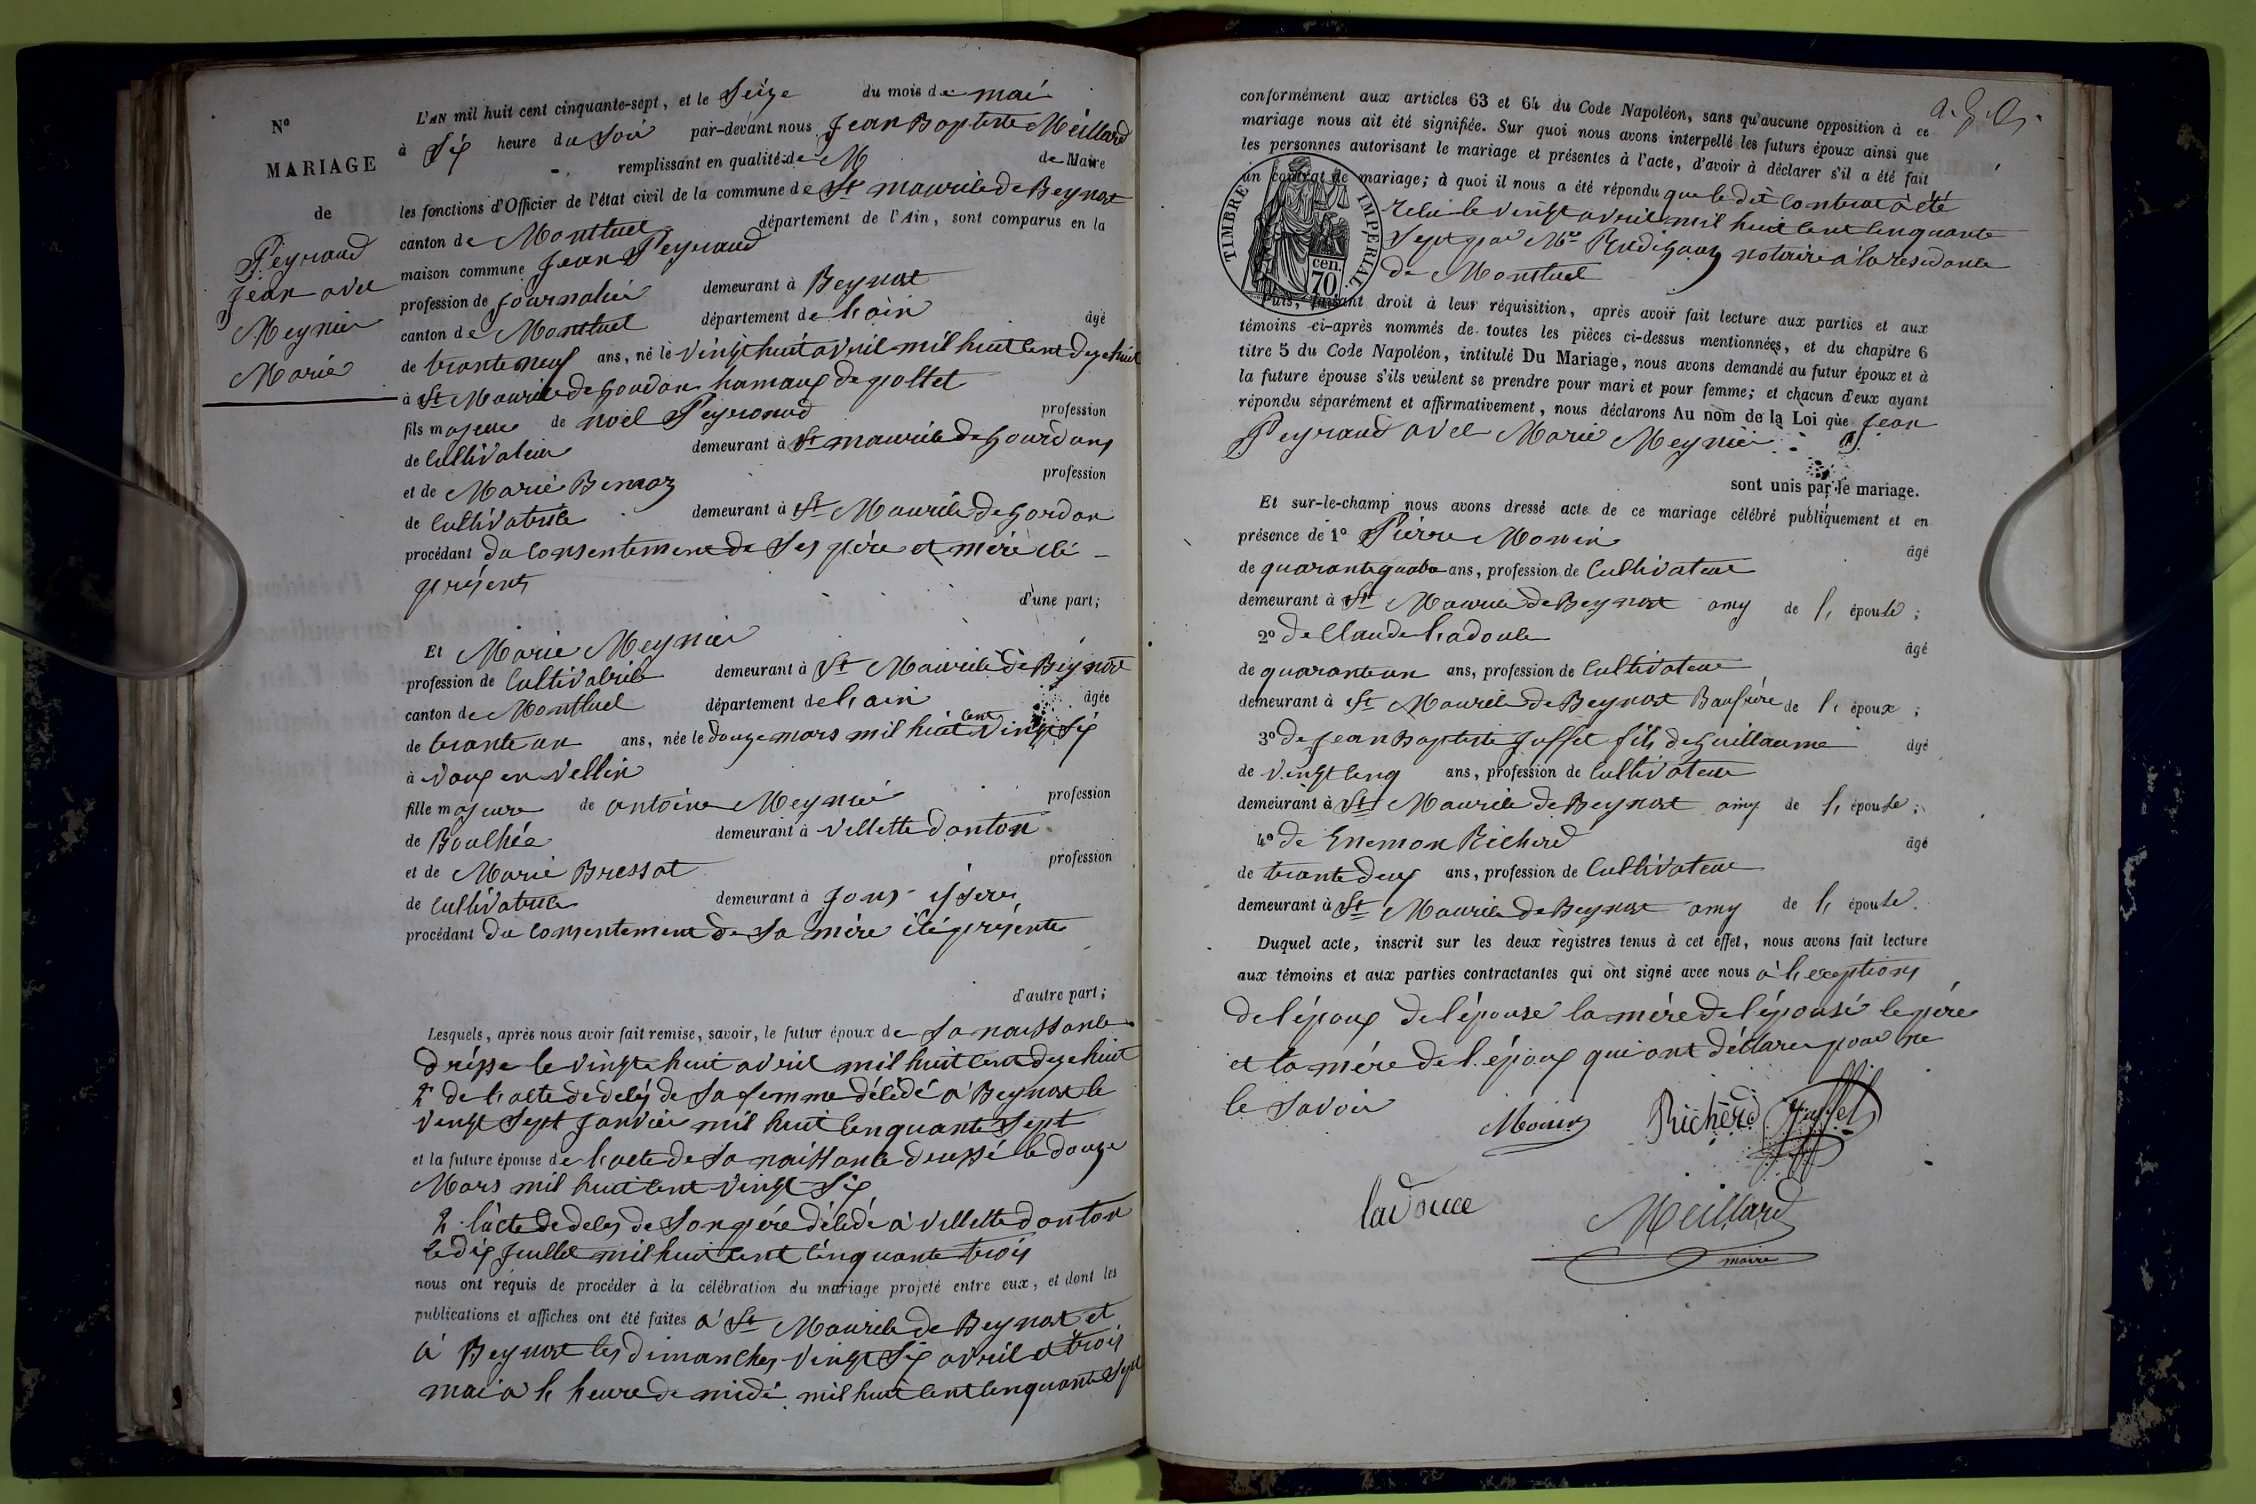 N°
MARIAGE
de
Peyraud
Jean avec
Meynier
Marie
L'AN mil huit cent cinquante-sept, et le Seize du mois de mai
à Six heure du Soir par-devant nous Jean Baptiste Meillard
remplissant en qualité de M de Maire
les fonctions d'Officier de l'état civil de la commune de St maurice de Beynost
canton de Montluel département de l'Ain, sont comparus en la
maison commune Jean Peyraud
profession de journalier demeurant à Beynost
canton de Montluel département de l'ain âgé
de trante neuf ans, né le vingt huit avril mil huit cent dix huit
à St Maurice de Gourdan hamaux de pollet
fils majeur de noël Peyraud profession
de Cultivateur demeurant à St maurice de Gourdans
et de Marie Bernoz profession
de Cultivatrice demeurant à St Maurice de Gordan
procédant du Consentement de Ses père et mère ici
présents
d'une part;
Et Marie Meynier
profession de Cultivatrice demeurant à St Maurice de Beynost
canton de Montluel département de l'ain âgée
de trante un ans, née le douze mars mil huit cent vingt Six
à Vaux en Vellin
fille majeure de antoine Meynier profession
de Bouché demeurant à villette d'anton
et de Marie Bressat profession
de Cultivatrice demeurant à Jons isère
procédant du Consentement de Sa mère ici présente
d'autre part;
Lesquels, après nous avoir fait remise, savoir, le futur époux de Sa naissance
drésse le vingt huit avril mil huit cent dix huit
2° de l'acte de décès de Sa femme décédé à Beynost le
vingt Sept Janvier mil huit cenquante Sept
et la future épouse de l'acte de Sa naissance dressé le douze
Mars mil huit cent vingt Six
2 l'acte de deces de Son père décédé à villette d'anton
le dix Juillet mil huit cent cinquante trois
nous ont requis de procéder à la célébration du mariage projeté entre eux, et dont les
publications et affiches ont été faites à St Maurice de Beynost et
à Beynost les dimanches vingt Six avril et trois
mai à l heure de midi mil huit cent cenquante Sept
conformément aux articles 63 et 64 du Code Napoléon, sans qu'aucune opposition à ce
mariage nous ait été signifiée. Sur quoi nous avons interpellé les futurs époux ainsi que
les personnes autorisant le mariage et présentes à l'acte, d'avoir à déclarer s'il a été fait
un contrat de mariage; à quoi il nous a été répondu que le dit Contrat à été
relui le vingt avril mil huit cent cenquante
Sept par Me notaire à la residance
de Montluel
TIMBRE IMPÉRIAL
70 cen.
Puis, faisant droit à leur réquisition, après avoir fait lecture aux parties et aux
témoins ci-après nommés de toutes les pièces ci-dessus mentionnées, et du chapitre 6
titre 5 du Code Napoléon, intitulé Du Mariage, nous avons demandé au futur époux et à
la future épouse s'ils veulent se prendre pour mari et pour femme; et chacun d'eux ayant
répondu séparément et affirmativement, nous déclarons Au nom de la Loi que Jean
Peyraud avec Marie Meynier
sont unis par le mariage.
Et sur-le-champ nous avons dressé acte de ce mariage célébré publiquement et en
présence de 1° Pierre Monin âgé
de quarante quatre ans, profession de Cultivateur
demeurant à St Maurice de Beynost amy de l'épouse;
2° de Claude Ladouce âgé
de quarante un ans, profession de Cultivateur
demeurant à St Maurice de Beynost Baufrère de l'époux;
3° de Jean Baptiste Juffet fils de Guillaume âgé
de vingt cenq ans, profession de Cultivateur
demeurant à St Maurice de Beynost amy de l'épouse;
4° de Enemon Richerd âgé
de trante deux ans, profession de Cultivateur
demeurant à St Maurice de Beynost amy de l'épouse.
Duquel acte, inscrit sur les deux registres tenus à cet effet, nous avons fait lecture
aux témoins et aux parties contractantes qui ont signé avec nous à l'exeptions
de l'époux de l'épouse la mère de l'épouse le père
et la mère de l'époux qui ont déclarer pour ne
le savoir
Monin Richerd Juffet
ladouce Meillard
maire